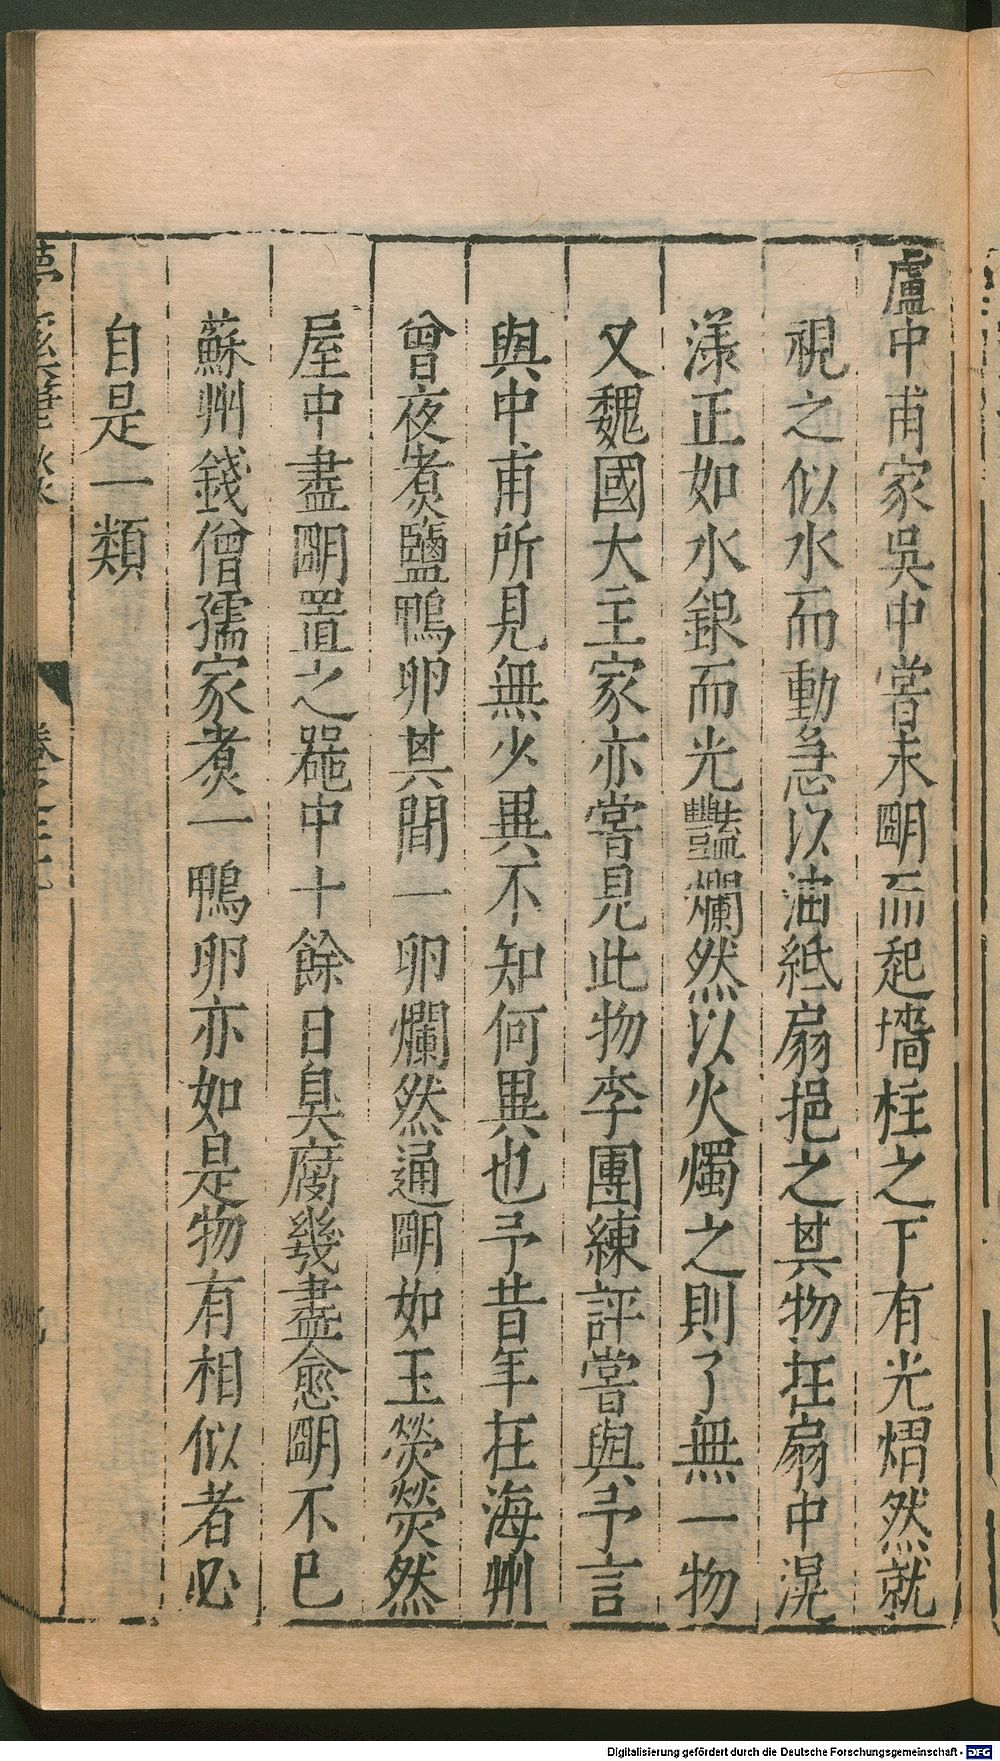 盧中甫家吳中嘗未明而起墻柱之下有光熠然就
視之似水而動急以油紙扇挹之其物在扇中滉
漾正如水銀而光豔爛然以火燭之則了無一物
又魏國大主家亦嘗見此物李團練評嘗與予言
與中甫所見無少異不知何異也予昔年在海州
曾夜煮鹽鴨卵其間一卵爛然通明如玉熒熒然
屋中盡明置之器中十餘日臭腐幾盡愈明不已
蘇州錢僧孺家煮一鴨卵亦如是物有相似者必
自是一類
夢溪筆談
卷之二十
九
Digitalisierung gefördert durch die Deutsche Forschungsgemeinschaft - DFG